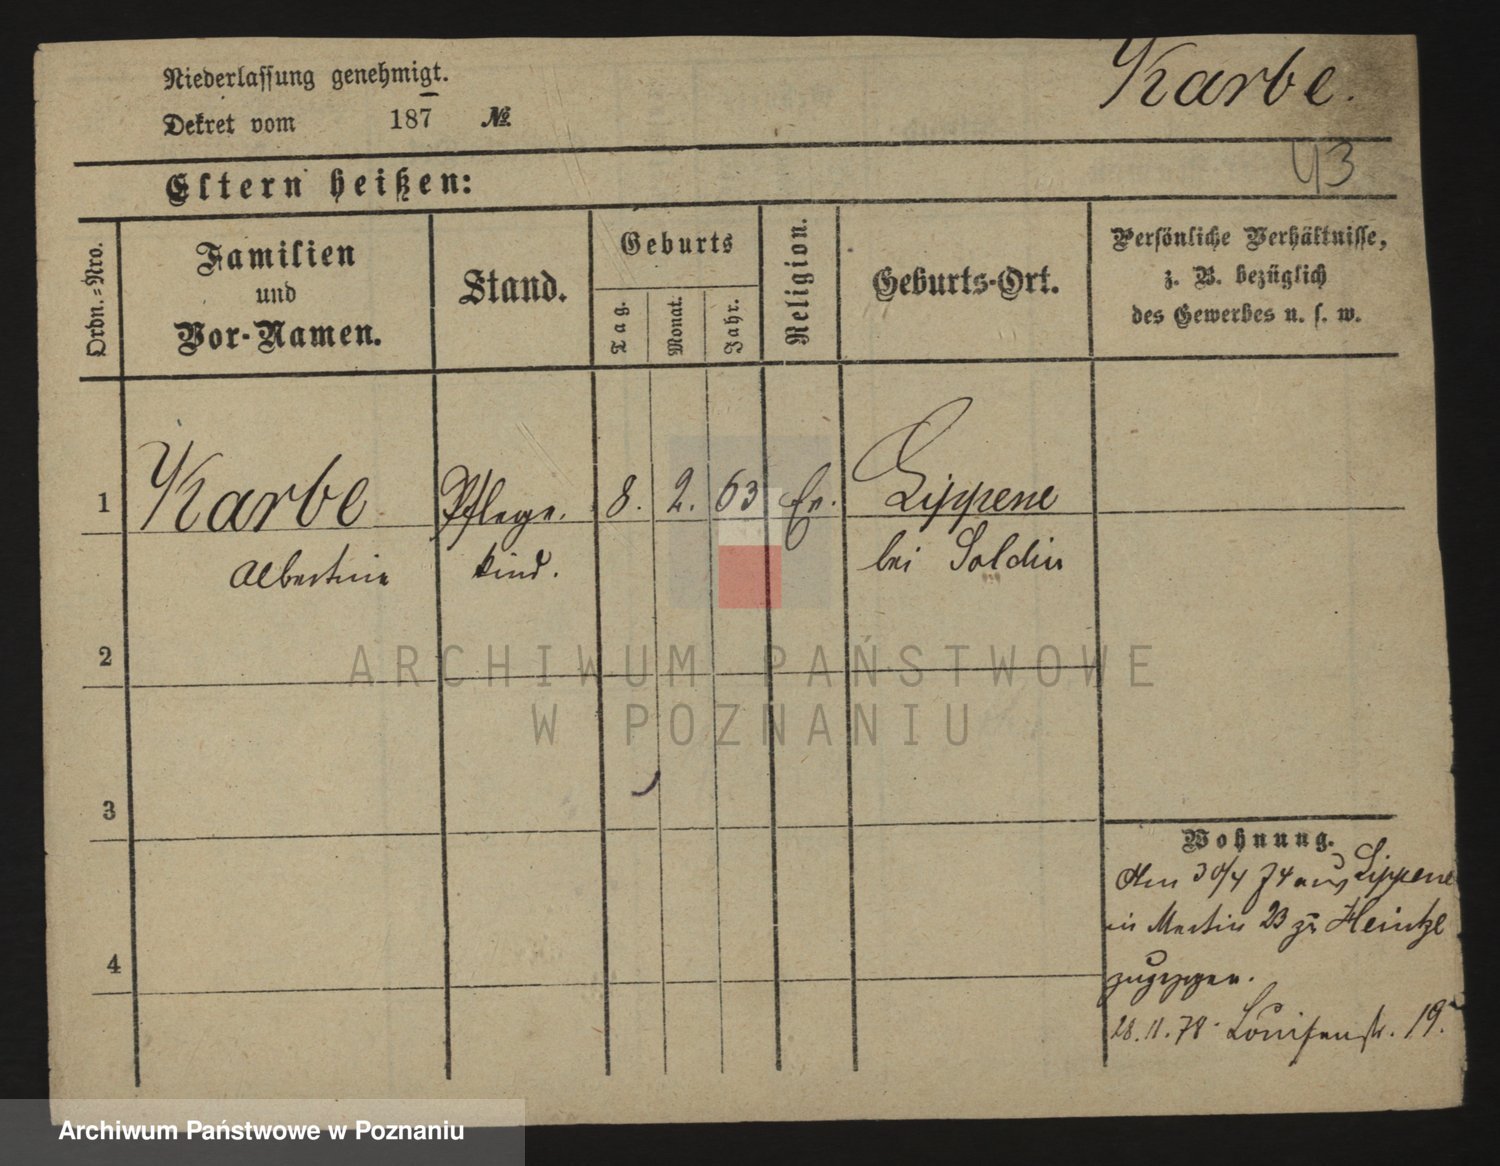 Karbe.
Niederlassung genehmigt.
Dekret vom 187 №
43
Eltern heißen:
Ordn.-Nro.
Familien
und
Vor-Namen.
Stand.
Geburts
Tag.
Monat.
Jahr.
Religion.
Geburts-Ort.
Persönliche Verhältnisse,
z. B. bezüglich
des Gewerbes u. s. w.
1 Karbe Pflege- 8. 2. 63 Ev. Lippene
Albertine kind. bei Soldin
2
3
4
ARCHIWUM PAŃSTWOWE
W POZNANIU
Wohnung.
Am 30/4 74 aus Lippene
in Martin 23 zu Heintze
zugezogen.
28.11.78 Louisenstr. 19.
Archiwum Państwowe w Poznaniu